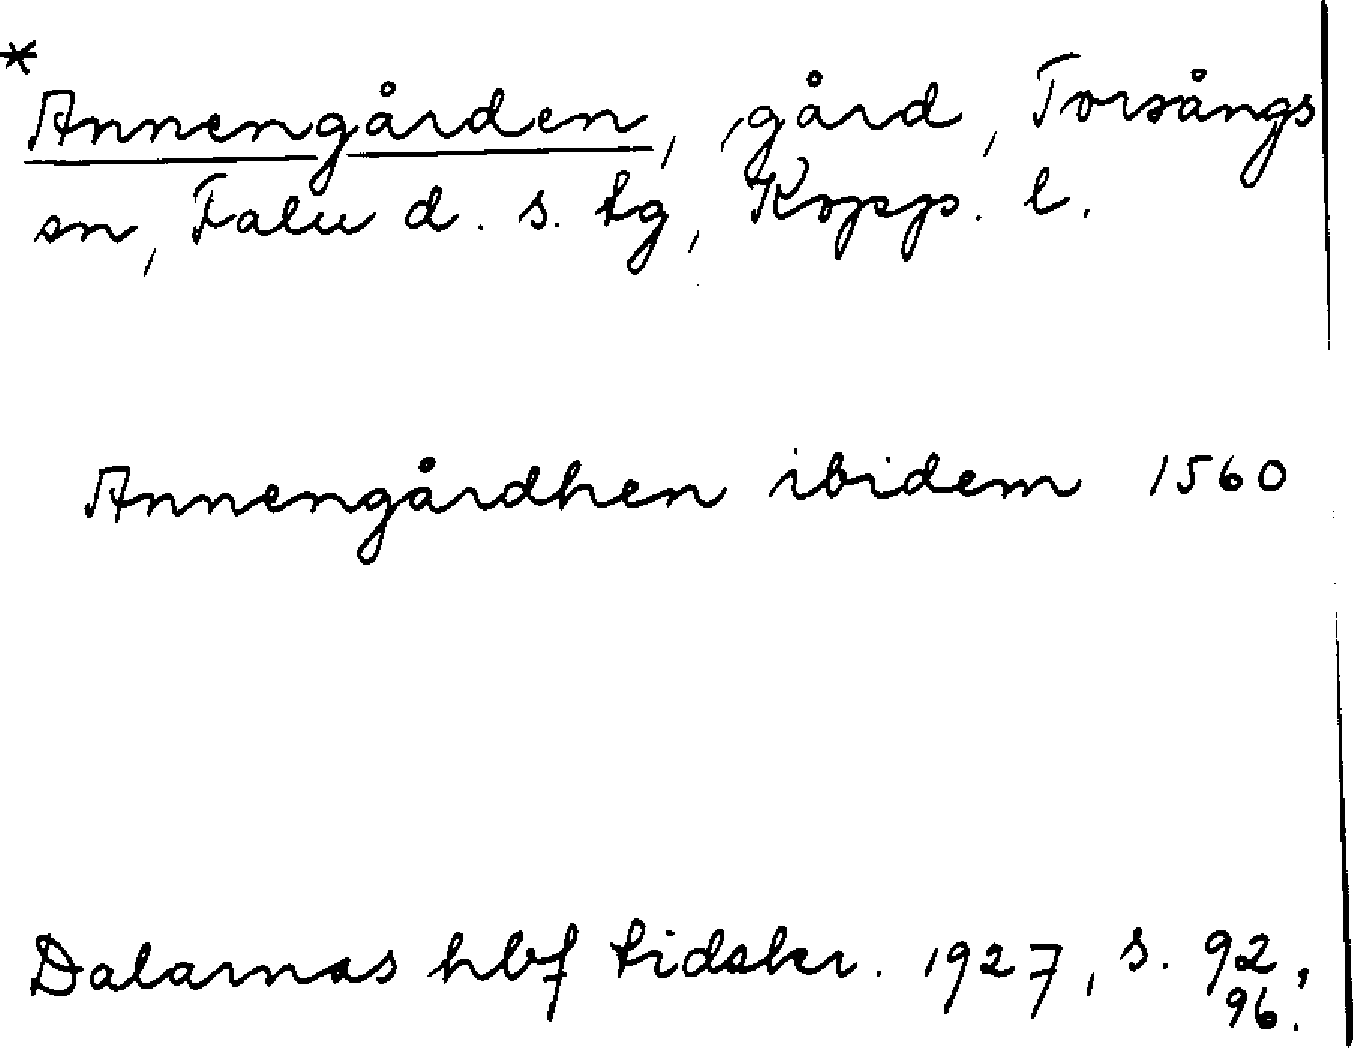 *
Annengården, gård, Torsångs
sn, Falu d. s. tg, Kopp. l.
Annengårdhen ibidem 1560
Dalarnas hbf tidskr. 1927, s. 92,
96.